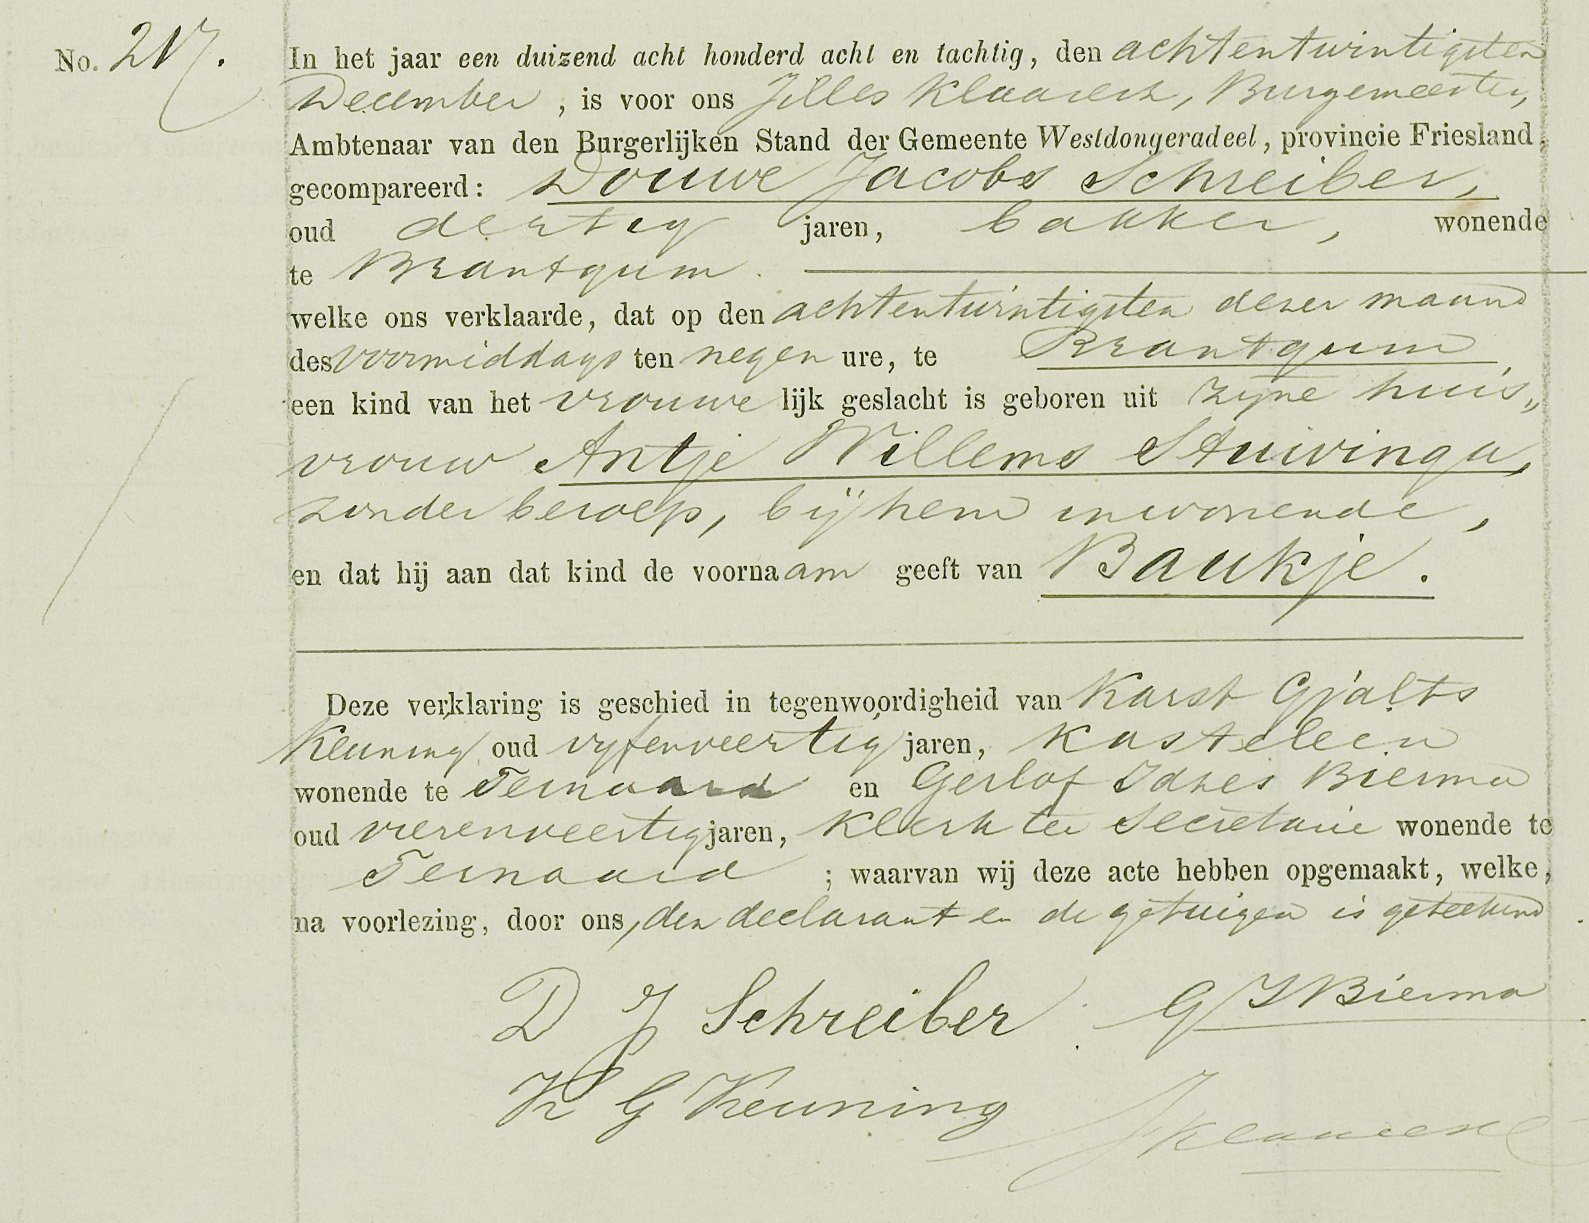 No. 217.
In het jaar een duizend acht honderd acht en tachtig, den achtentwintigsten
December, is voor ons Jilles Klaasesz, Burgemeester,
Ambtenaar van den Burgerlijken Stand der Gemeente Westdongeradeel, provincie Friesland,
gecompareerd: Douwe Jacobs Schreiber,
oud dertig jaren, bakker, wonende
te Brantgum
welke ons verklaarde, dat op den achtentwintigsten dezer maand
des voormiddags ten negen ure, te Brantgum
een kind van het vrouwelijk geslacht is geboren uit zijne huis„
vrouw Antje Willems Stuivinga,
zonder beroep, bij hem inwonende,
en dat hij aan dat kind de voornaam geeft van Baukje.
Deze verklaring is geschied in tegenwoordigheid van Karst Gjalts
Keuning oud vijfenveertig jaren, kastelein
wonende te Ternaard en Gerlof Idzes Bierma
oud vierenveertig jaren, klerk ter Secretarie wonende te
Ternaard ; waarvan wij deze acte hebben opgemaakt, welke,
na voorlezing, door ons, den declarant en de getuigen is geteekend
D J Schreiber G I Bierma
K G Keuning